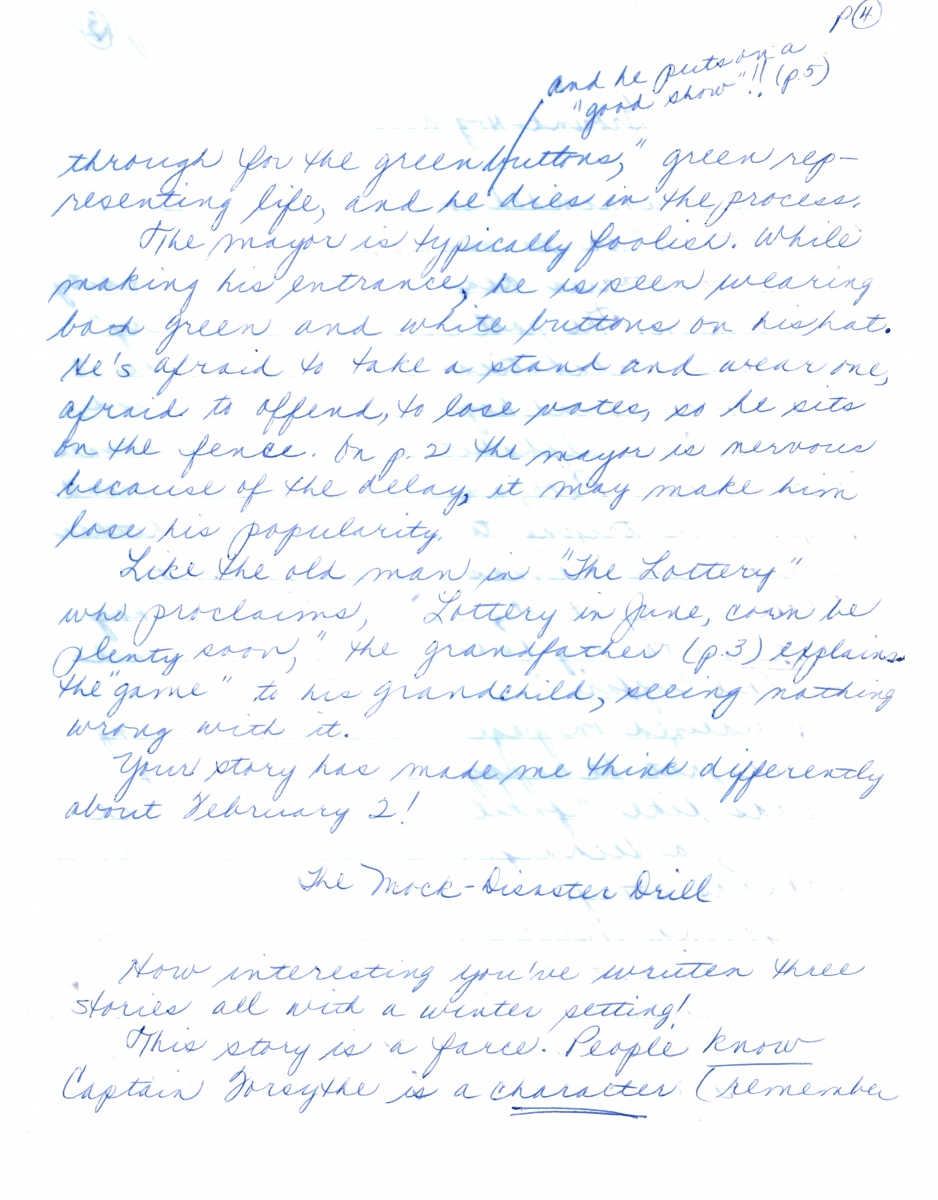 p④
and he puts on a
"good show"!! (p.5)
through for the green buttons," green rep-
resenting life, and he dies in the process.
The mayor is typically foolish. While
making his entrance, he is seen wearing
both green and white buttons on his hat.
He's afraid to take a stand and wear one,
afraid to offend, to lose votes, so he sits
on the fence. On p. 2 the mayor is nervous
because of the delay, it may make him
lose his popularity.
Like the old man in "The Lottery"
who proclaims, "Lottery in June, corn be
plenty soon," the grandfather (p.3) explains
the "game" to his grandchild, seeing nothing
wrong with it.
Your story has made me think differently
about February 2!
The Mock-Disaster Drill
How interesting you've written three
stories all with a winter setting!
This story is a farce. People know
Captain Forsythe is a character (remember